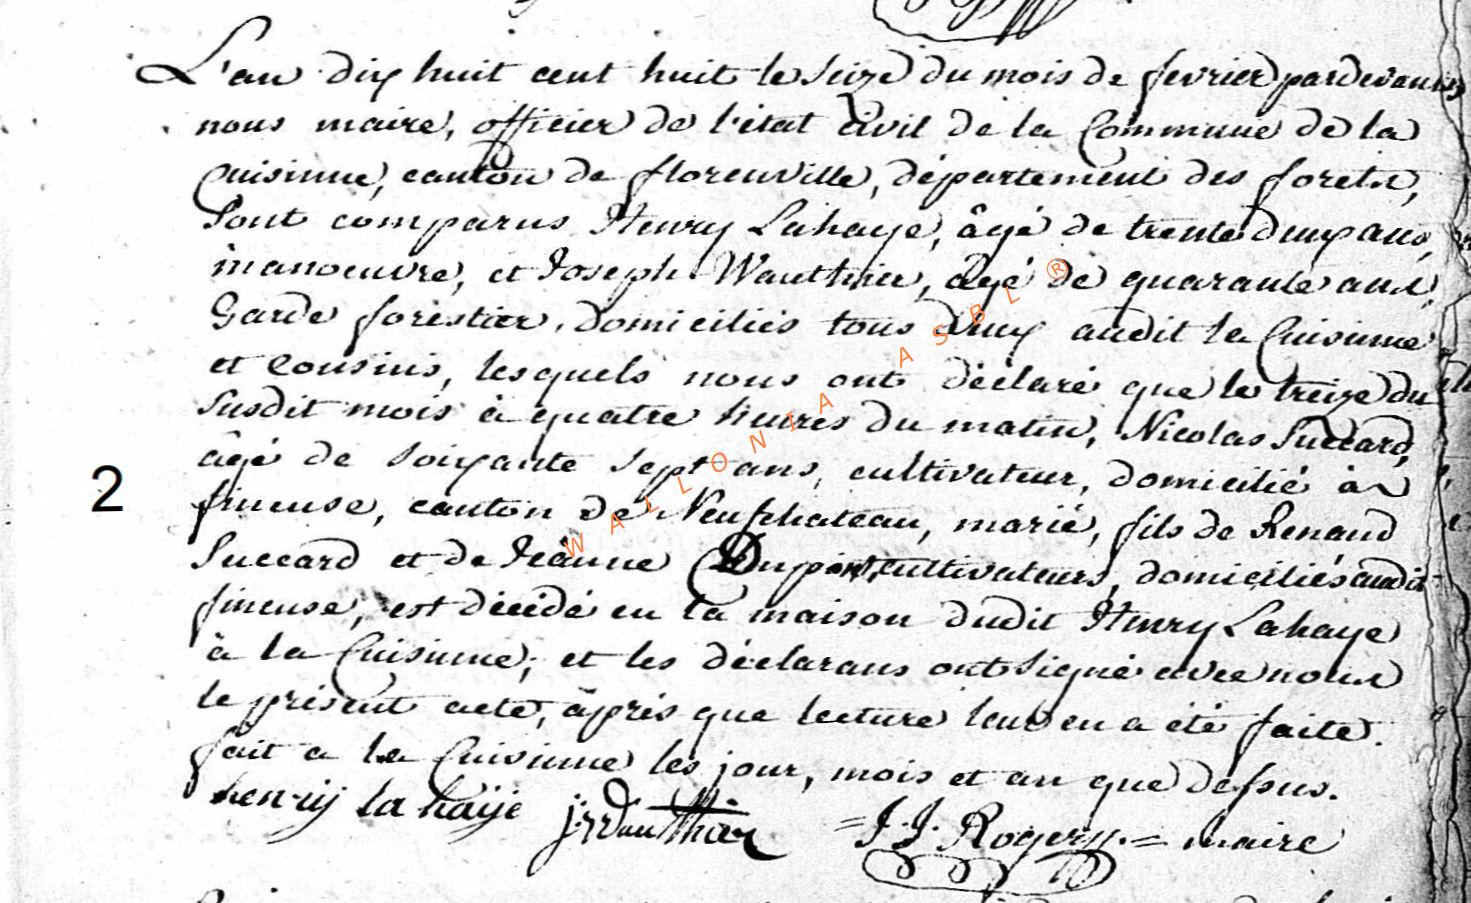 L'an dix huit cent huit le seize du mois de fevrier pardevant
nous maire, officier de l'état civil de la Commune de la
Cuisinne, canton de florenville, département des forets,
Sont comparus Henry Lahaye, âgé de trente deux ans,
manoeuvre, et Joseph Wauthier, âgé de quarante ans,
Garde forestier, domiciliés tous deux audit la Cuisinne
et cousins, lesquels nous ont déclaré que le treize du
susdit mois à quatre heures du matin, Nicolas Succard,
âgé de soixante sept ans, cultivateur, domicilié à
2
fineuse, canton de Neufchateau, marié, fils de Renaud
Succard et de Jeanne Dupont, cultivateurs, domiciliés audit
fineuse, est décédé en la maison dudit Henry Lahaye
à la Cuisinne; et les déclarans ont signé avec nous
le présent acte, après que lecture leur en a été faite.
fait a la Cuisinne les jour, mois et an que dessus.
henrij la haije j: wauthier = J. J. Rogery. = maire
WALLONIA ASBL ®